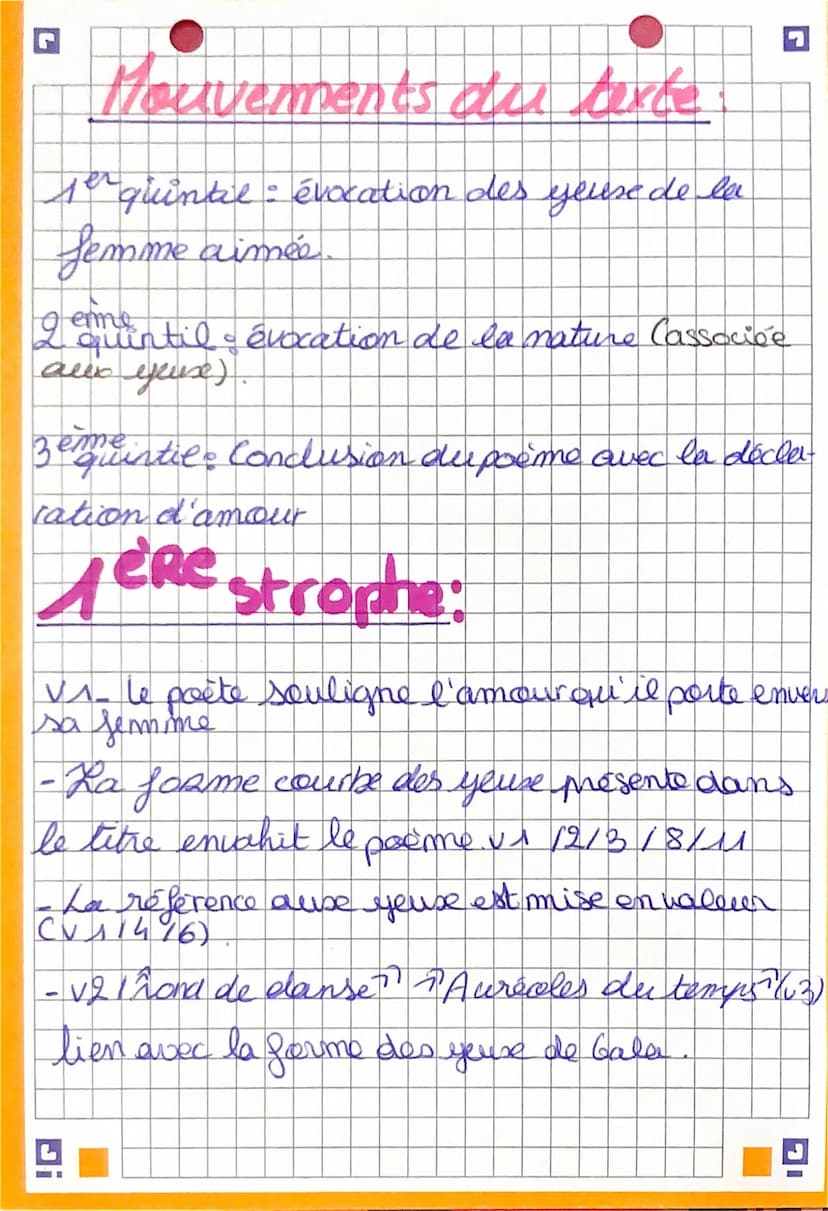 Mouvements du texte :
1er quintil : évocation des yeux de la
femme aimée.
2eme quintil : évocation de la nature (associée
aux yeux).
3ème quintil : Conclusion du poème avec la décla-
ration d'amour
1ÈRE strophe:
V1- le poète souligne l'amour qu'il porte envers
sa femme
- La forme courbe des yeux présente dans
le titre envahit le poème. v1 /2/3 /8/11
- La référence aux yeux est mise en valeur
(V 1/4/6)
- v2 "Rond de danse" "Auréoles du temps" (v3)
lien avec la forme des yeux de Gala.